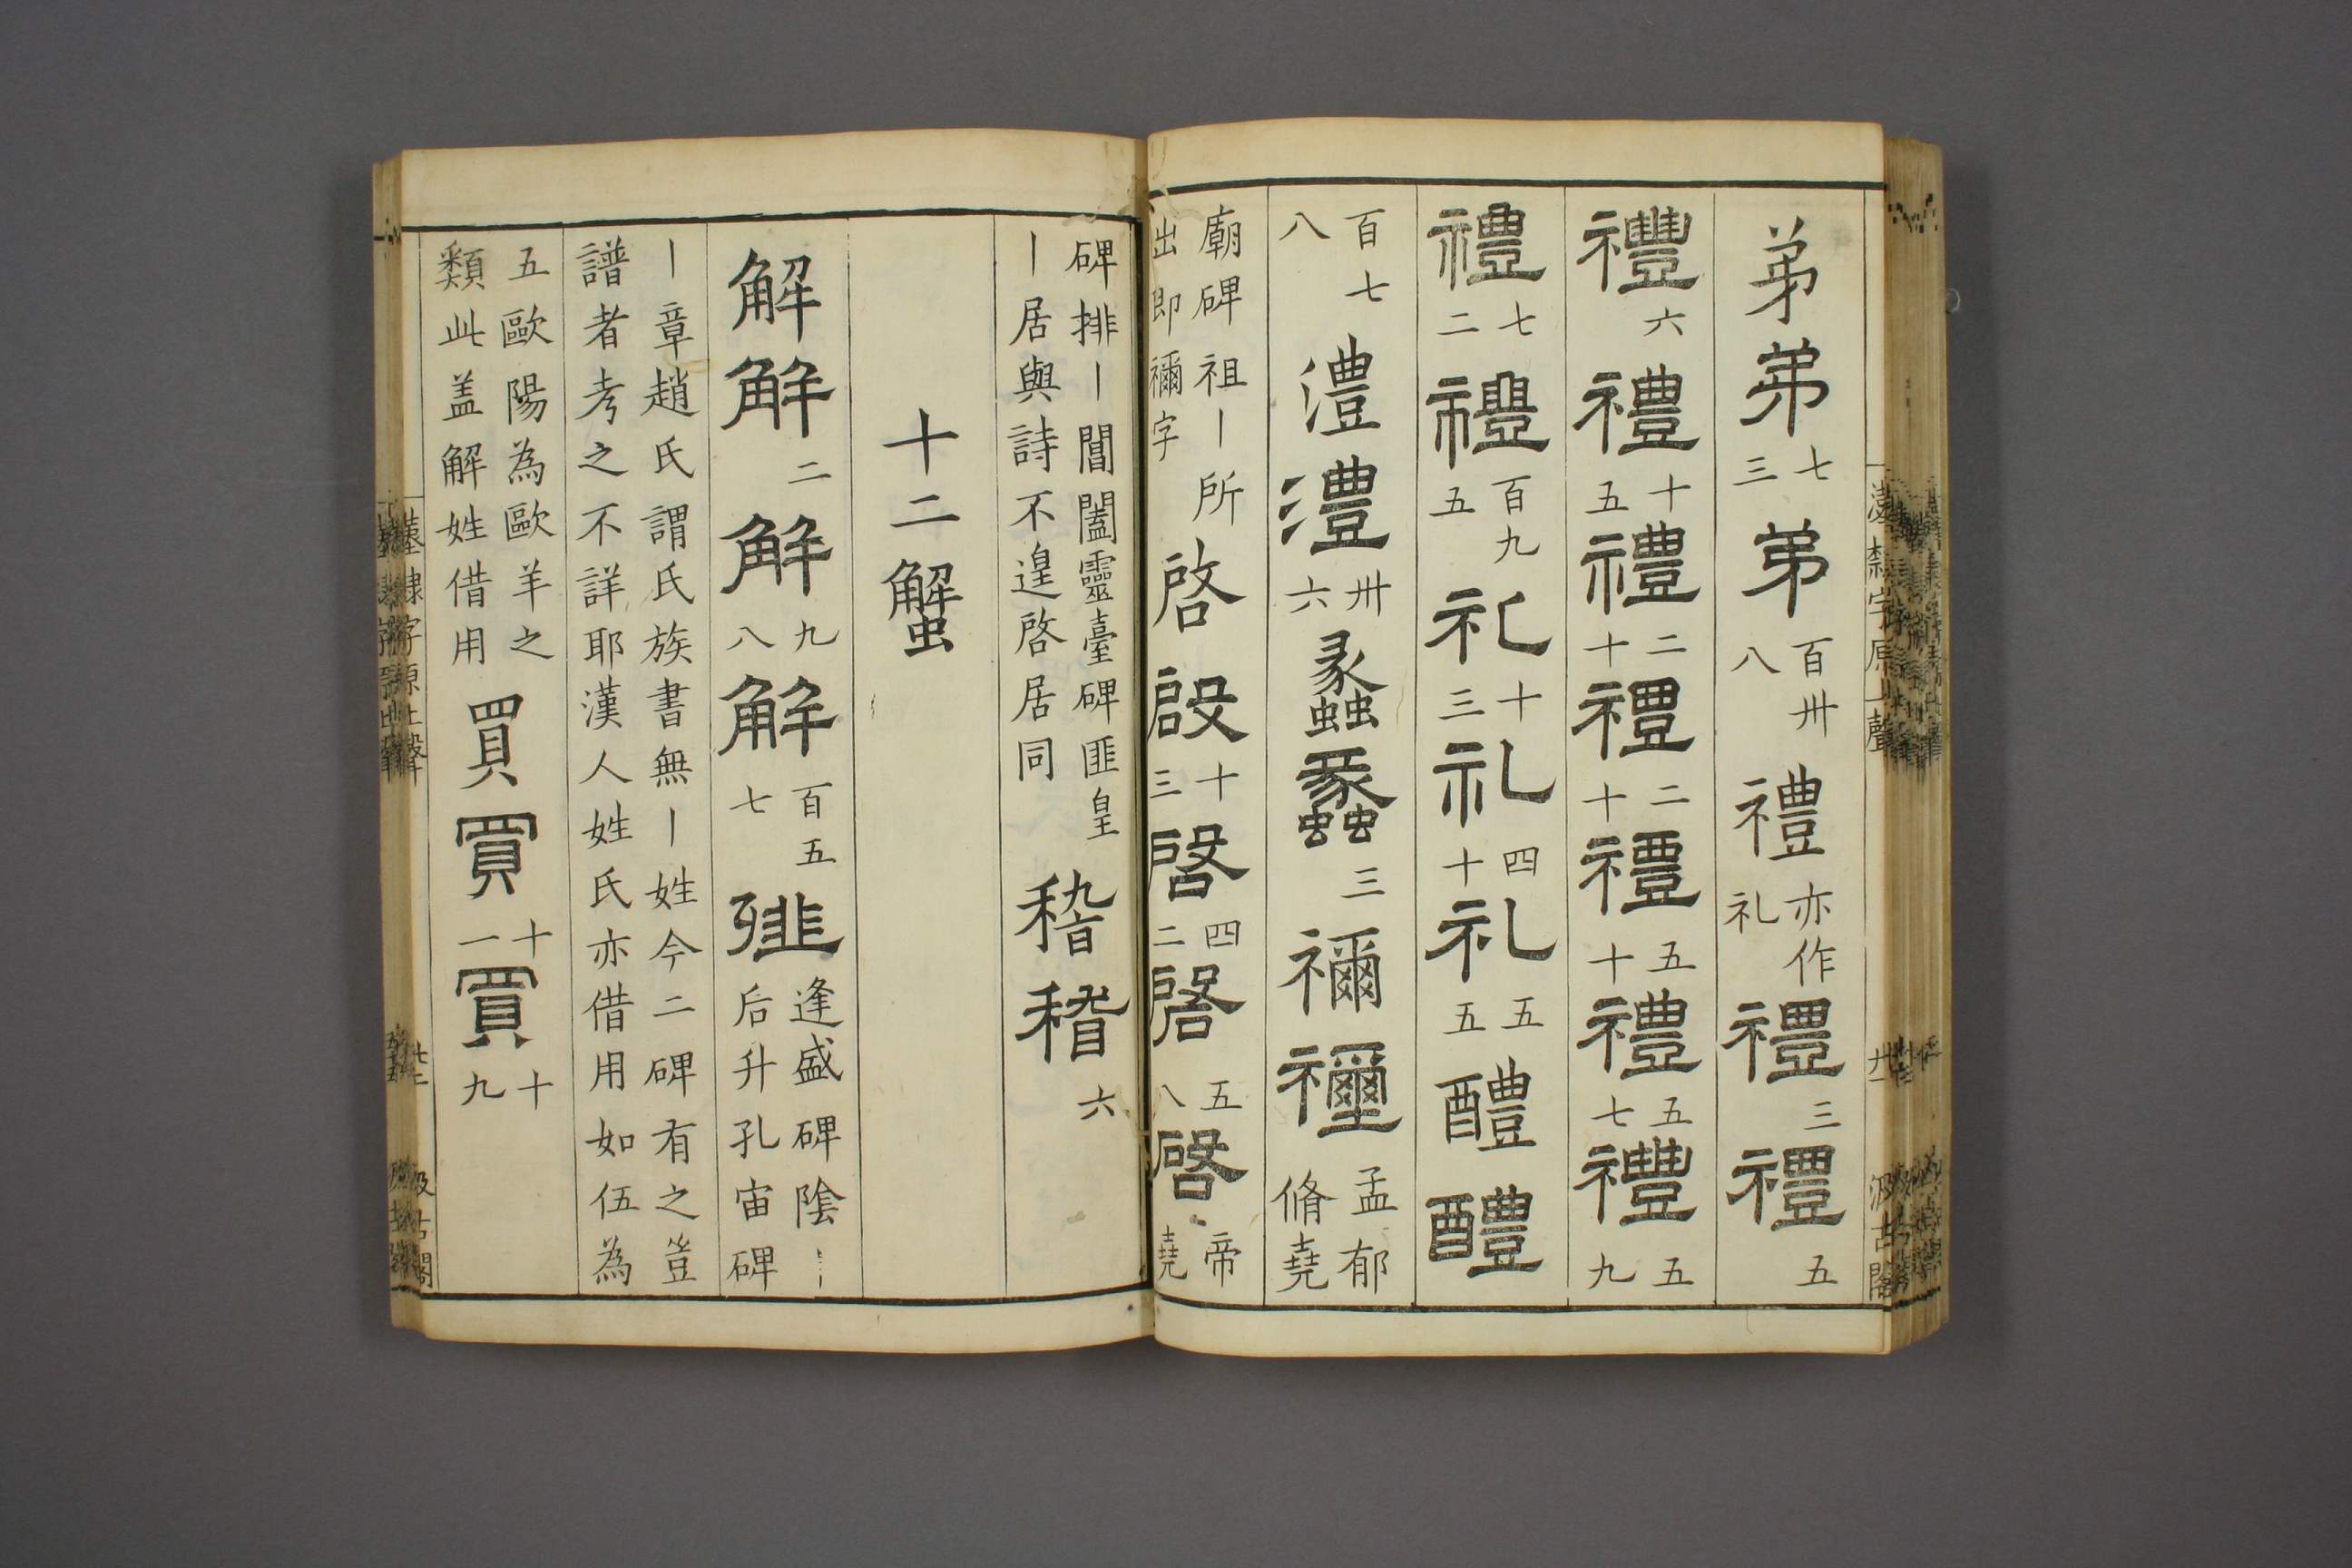 弟弟七三弟百卅八禮亦作礼禮三禮五
禮六禮十五禮二十禮二十禮五十禮五七禮五九
禮七二禮百九五礼十三礼四十礼五五醴醴
百七八澧澧卅六蠡蠡三禰禰孟郁脩堯
廟碑祖丨所出即禰字啓啟十三啓四二啓五八啓帝堯
碑排丨閶闔靈臺碑匪皇丨居與詩不遑啓居同䅲稽六
十二蟹
解解二解九八解百五七逢盛碑陰丨后升孔宙碑
丨章趙氏謂氏族書無丨姓今二碑有之豈譜者考之不詳耶漢人姓氏亦借用如伍為
五歐陽為歐羊之類此盖解姓借用買買十一買十九
漢隸字原上聲
廿二
汲古閣